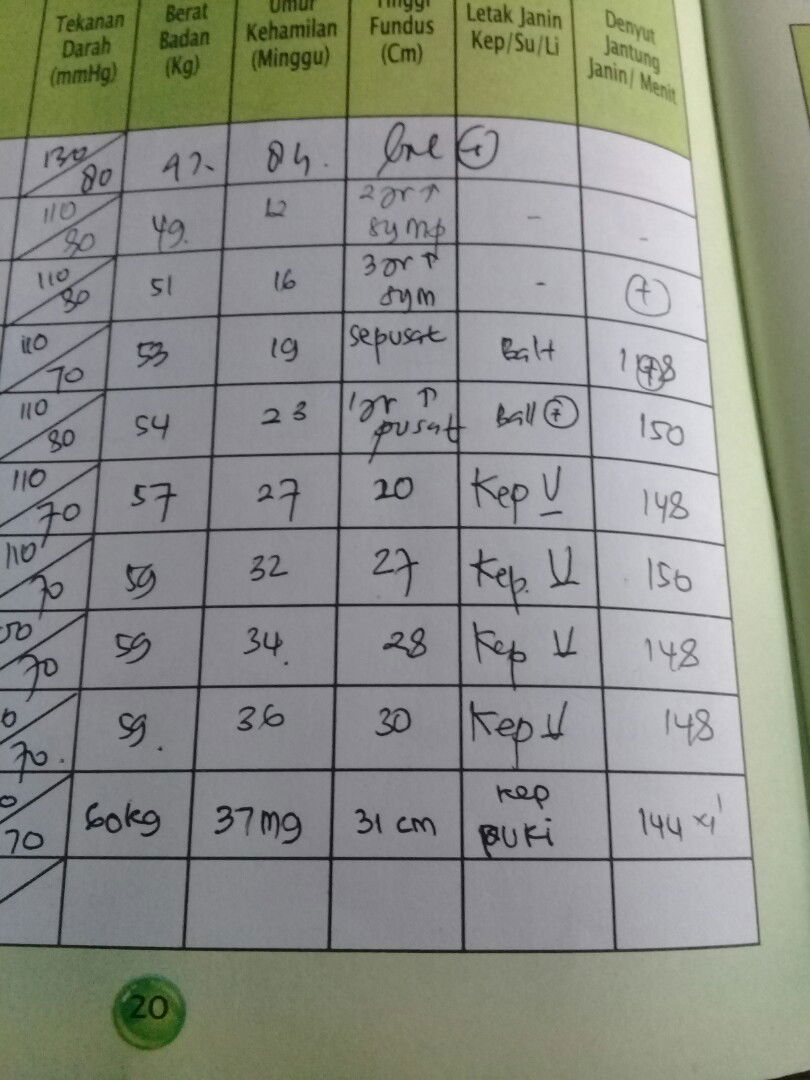 Tekanan Darah (mmHg) Berat Badan (Kg) Umur Kehamilan (Minggu) Tinggi Fundus (Cm) Letak Janin Kep/Su/Li Denyut Jantung Janin/ Menit
130/80 47. +
110/80 49. 12 2 Jr ↑ symp - -
110/80 51 16 3 Jr ↑ sym - +
110/70 53 19 sepusat Ball +
110/80 54 23 1 Jr ↑ pusat Ball + 150
110/70 57 27 20 Kep U 148
110/70 59 32 27 Kep. U 150
70 59 34. 28 Kep U 148
70. 59. 36 30 Kep U 148
70 60kg 37mg 31 cm kep puki 144 x1'
20